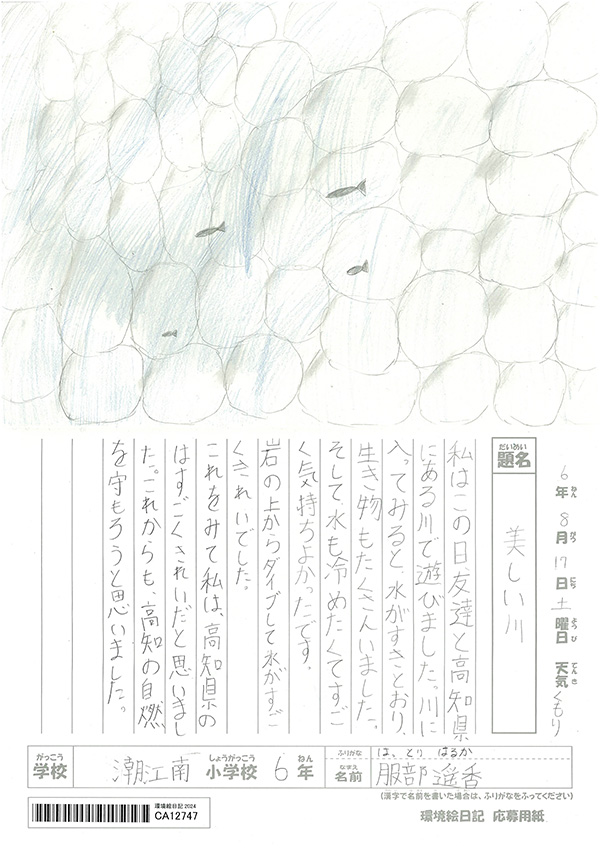 6年 8月 17日 土曜日 天気 くもり
ねん がつ にち ようび てんき
だいめい
題名
美しい川
私はこの日、友達と高知県
にある川で遊びました。川に
入ってみると、水がすきとおり、
生き物もたくさんいました。
そして、水も冷めたくてすご
く気持ちよかったです。
岩の上からダイブして水がすご
くきれいでした。
これをみて私は、高知県の
はすごくきれいだと思いまし
た。これからも、高知の自燃
を守もろうと思いました。
がっこう しょうがっこう ねん
学校 潮江南 小学校 6年
ふりがな は、とり はるか
なまえ
名前 服部 遥香
(漢字で名前を書いた場合は、ふりがなをふってください)
環境絵日記2024
CA12747
環境絵日記 応募用紙